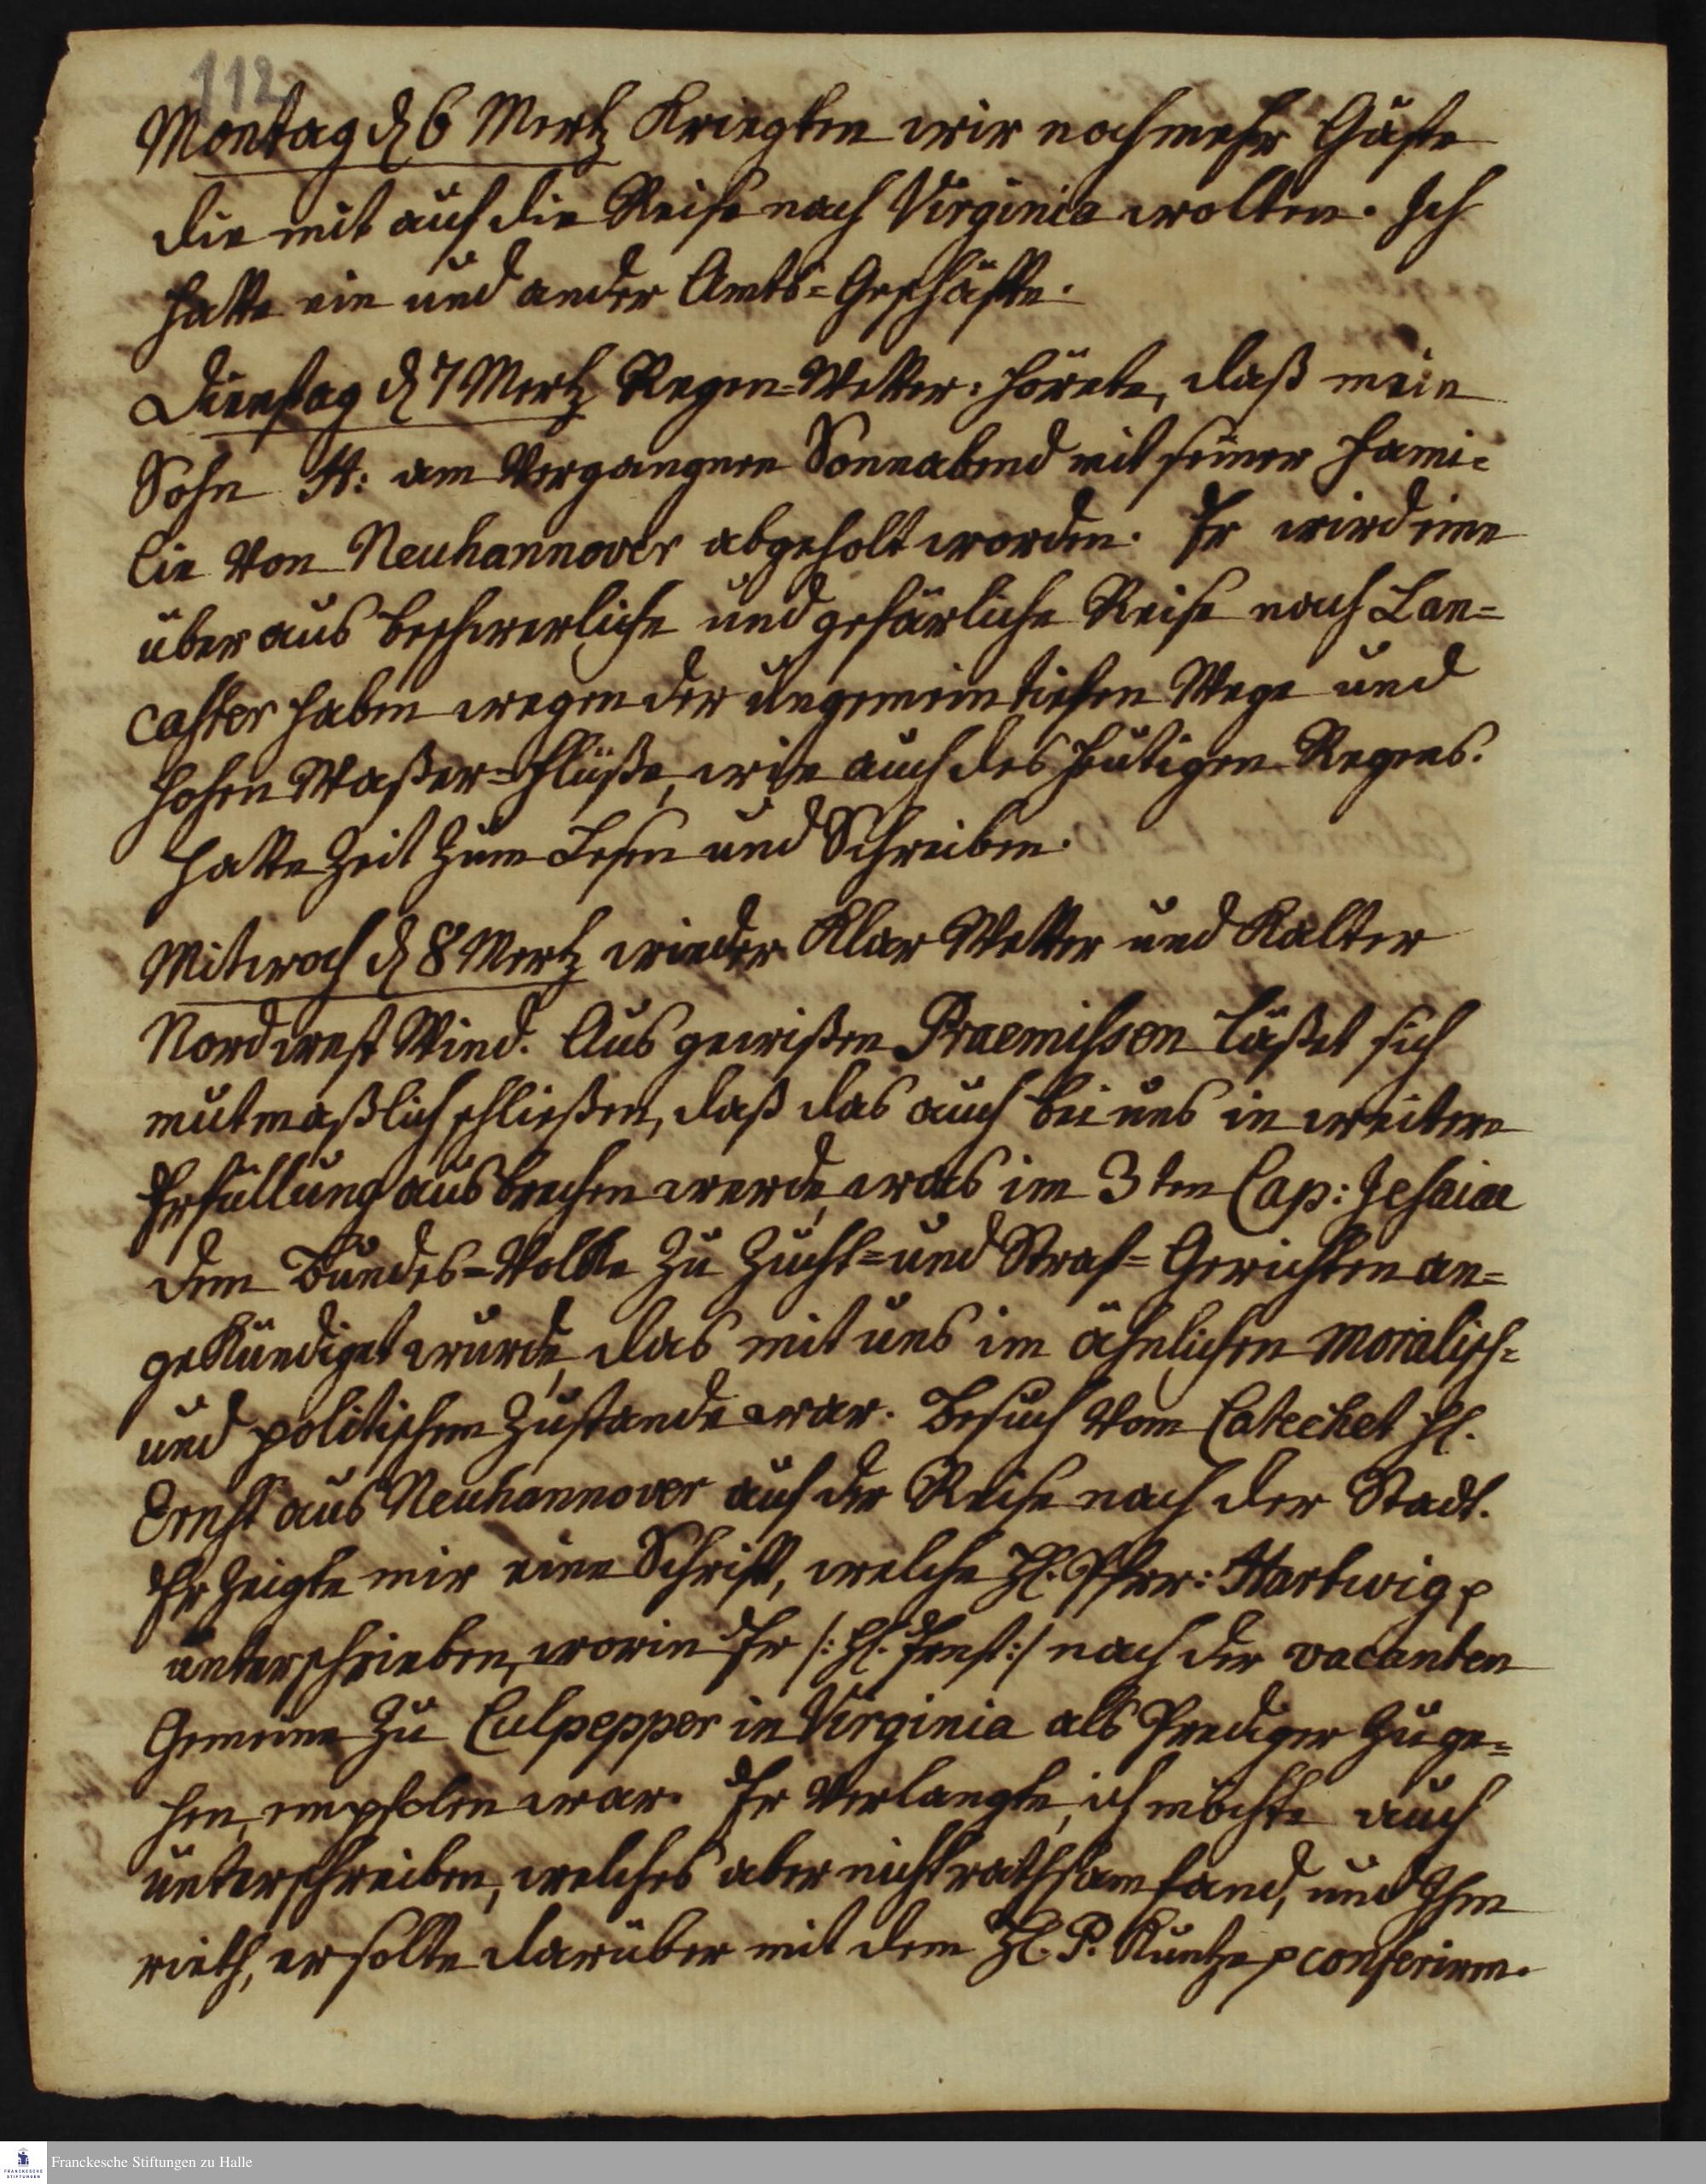 112
Montag d 6 Mertz Kriegten wir noch mehr Gäste
die mit auf die Reise nach Virginia wolten. Ich
hatte ein und ander Amts=Geschäfte.
Dienstag d 7 Mertz Regen=Wetter: hörete, daß mein
Sohn H: am Vergangnen Sonnabend mit seiner Fami=
lie von Neuhannover abgeholt worden. Er wird eine
über aus beschwerliche und gefärliche Reise nach Lan=
caster haben wegen der ungemein tiefen Wege und
hohen Waßer=Flüße, wie auch des heutigen Regens.
hatte Zeit zum Lesen und Schreiben.
Mitwoch d 8 Mertz wieder Klar Wetter und Kalter
Nordwest Wind. Aus gewißen Praemissen läßet sich
mutmaßlich schließen, daß das auch bei uns in weitere
Erfüllung ausbrechen werde, was im 3ten Cap: Jesaiae
dem Bundes=Volcke zu Zucht= und Straf=Gerichten an=
gekündiget wurde, das mit uns im ähnlichen moralisch=
und politischen Zustande war. Besuch vom Catechet H.
Ernst aus Neuhannover auf der Reise nach der Stadt.
Er zeigte mir eine Schrift, welche H. Pfarr: Hartwig p
unterschrieben, worin Er /: H. Ernst :/ nach der vacanten
Gemeine zu Culpepper in Virginia als Prediger zu ge=
hen, empfolen war. Er verlangte, ich möchte auch
unterschreiben, welches aber nicht rathsam fand, und Ihm
rieth, er solte darüber mit dem H. P. Kuntze p conferiren.
Franckesche Stiftungen zu Halle
FRANCKESCHE
STIFTUNGEN